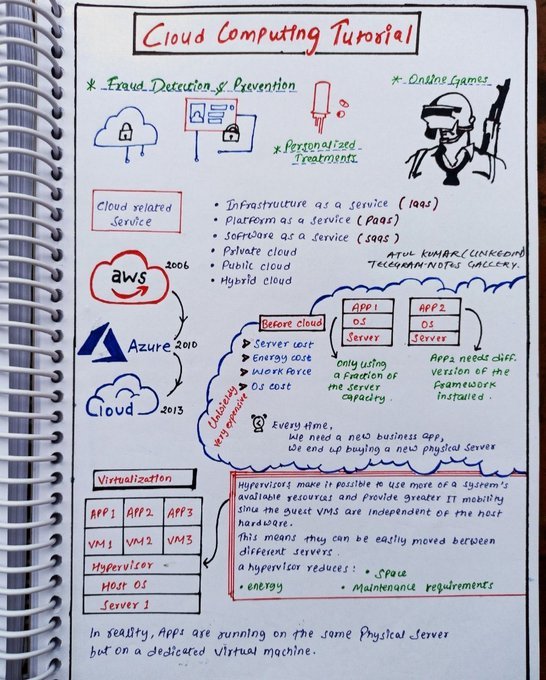 Cloud Computing Turorial
* Fraud Detection & Prevention
* Online Games
* Personalized
Treatments
Cloud related
Service
• Infrastructure as a service (Iaas)
• Platform as a service (Paas)
• Software as a service (saas)
• Private cloud
• Public cloud
• Hybrid cloud
ATUL KUMAR (LINKEDIN)
TELEGRAM-NOTES GALLERY.
aws
2006
Azure
2010
Cloud
2013
Before cloud
➤ Server cost
➤ Energy cost
➤ Workforce
➤ Os cost
Unwieldy
very expensive
APP 1
OS
Server
APP 2
OS
Server
Only using
a fraction of
the server
capacity.
App2 needs diff.
version of the
Framework
installed.
Every time,
We need a new business app,
We end up buying a new physical server
Virtualization
APP 1 APP 2 APP 3
VM 1 VM 2 VM 3
Hypervisor
Host OS
Server 1
Hypervisors make it possible to use more of a system's
available resources and provide greater IT mobility
since the guest VMs are independent of the host
hardware.
This means they can be easily moved between
different servers.
a hypervisor reduces: • Space
• energy • Maintenance requirements
In reality, Apps are running on the same Physical Server
but on a dedicated virtual machine.